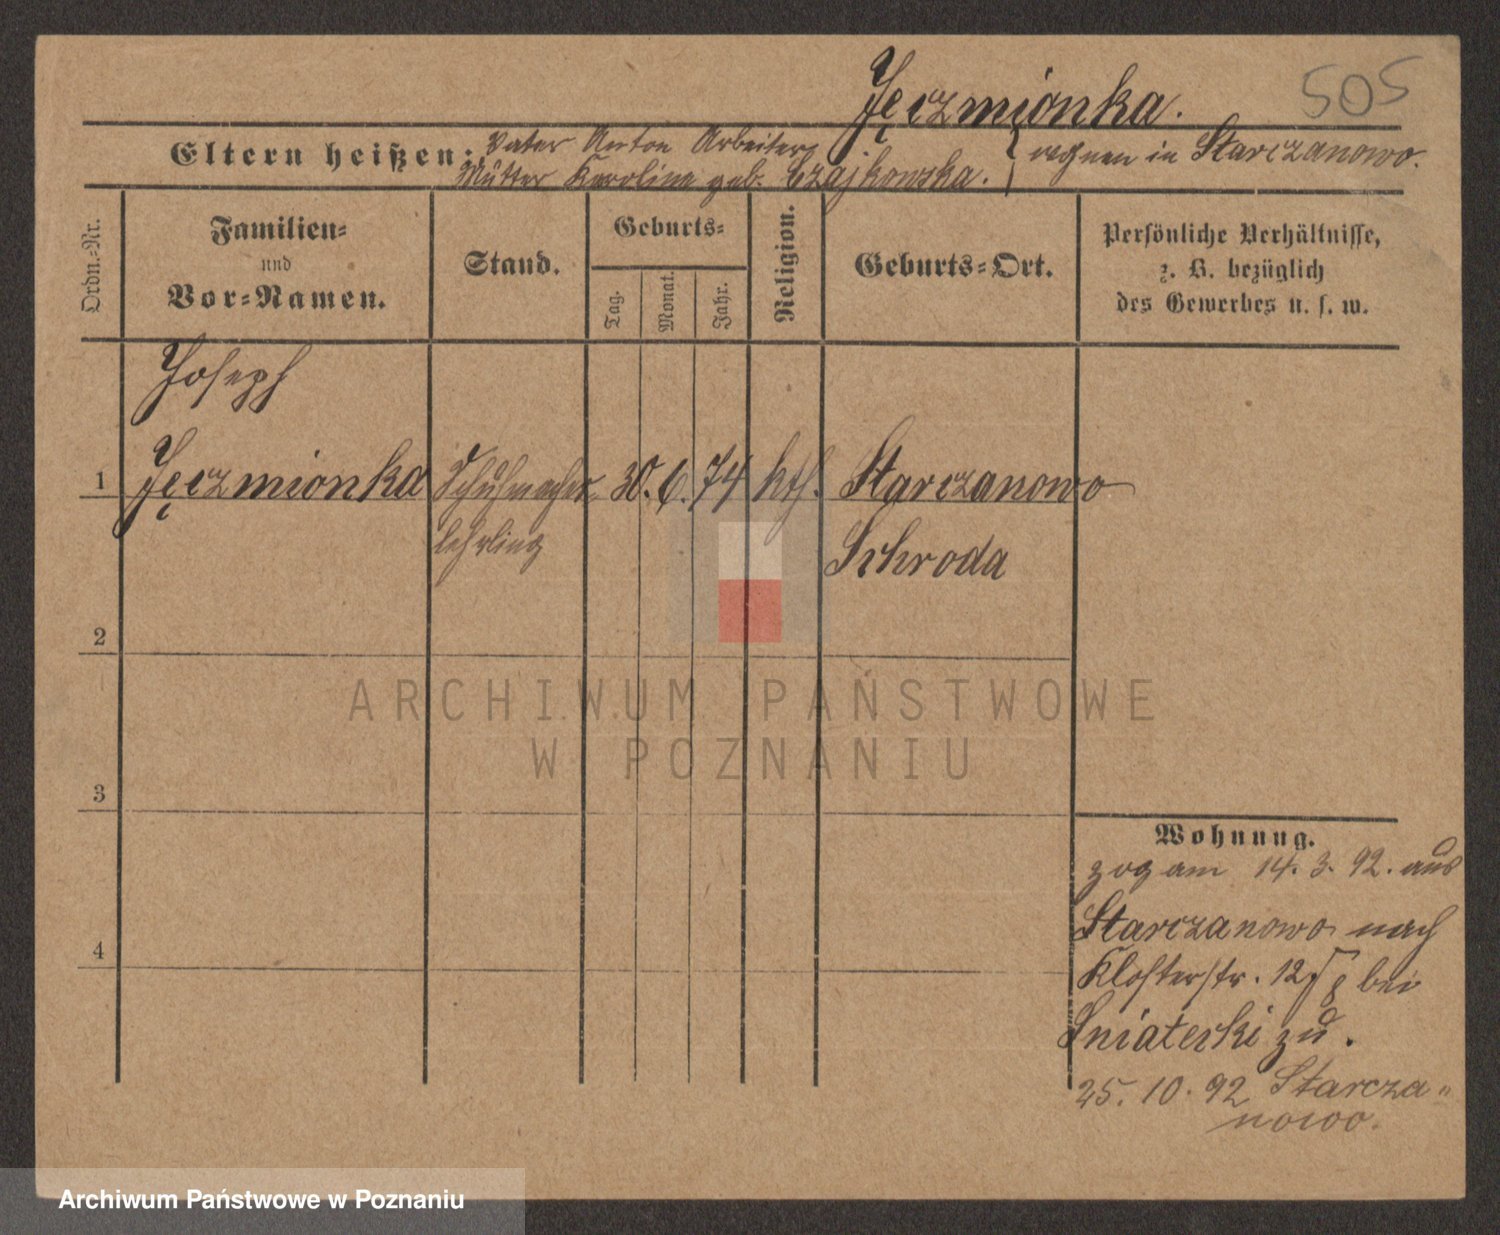 Jęczmionka. 505
Eltern heißen: Vater Anton Arbeiter
Mutter Karolina geb. Czajkowska. } wohnen in Starczanowo.
Ordn.-Nr.
Familien-
und
Vor-Namen.
Stand.
Geburts-
Tag.
Monat.
Jahr.
Religion.
Geburts-Ort.
Persönliche Verhältnisse,
z. B. bezüglich
des Gewerbes u. s. w.
Joseph
1 Jęczmionka Schuhmacher- 30. 6. 74 kth. Starczanowo
lehrling Schroda
2
ARCHIWUM PAŃSTWOWE
W POZNANIU
3
Wohnung.
zog am 14. 3. 92. aus
Starczanowo nach
4
Klosterstr. 12 bei
Sniaterki zu.
25. 10. 92 Starcza-
nowo.
Archiwum Państwowe w Poznaniu